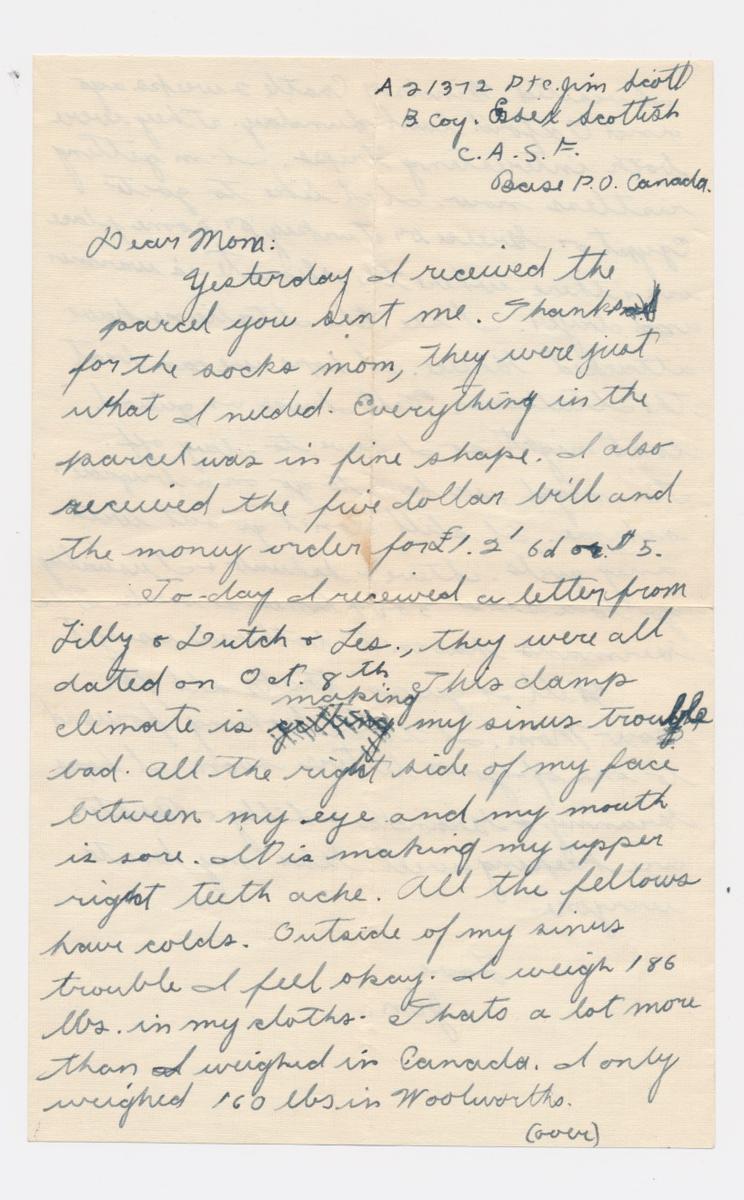 A 21372 Pte. Jim Scott
B Coy. Essex Scottish
C. A. S. F.
Base P.O. Canada.
Dear Mom:
Yesterday I received the
parcel you sent me. Thanks
for the socks mom, they were just
what I needed. Everything in the
parcel was in fine shape. I also
received the five dollar bill and
the money order for £1. 2' 6d or $5.
To-day I received a letter from
Lilly & Dutch & Les., they were all
dated on Oct. 8th This damp
making
climate is my sinus trouble
bad. All the right side of my face
between my eye and my mouth
is sore. It is making my upper
right teeth ache. All the fellows
have colds. Outside of my sinus
trouble I feel okay. I weigh 186
lbs. in my cloths. Thats a lot more
than I weighed in Canada. I only
weighed 160 lbs in Woolworths.
(over)